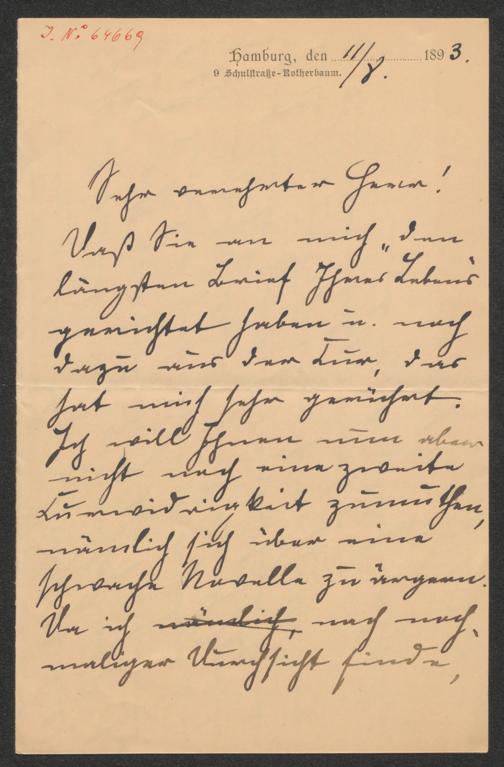 J. No 64669
Hamburg, den 11/8. 1893.
9 Schulstraße-Rotherbaum.
Sehr verehrter Herr!
Daß Sie an mich „den
längsten Brief Ihres Lebens"
gerichtet haben u. noch
dazu aus der Kur, das
hat mich sehr gerührt.
Ich will Ihnen nun aber
nicht noch eine zweite
Kurwidrigkeit zumuthen,
nämlich sich über eine
schwache Novelle zu ärgern.
Da ich nämlich, nach noch-
maliger Durchsicht finde,